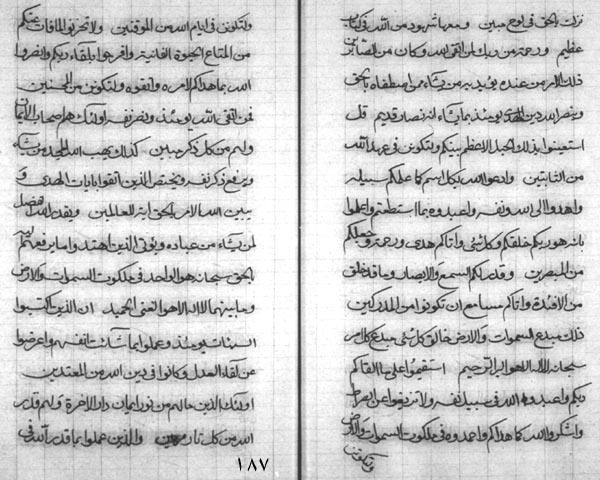 نزلت بالحق في لوح مبين ومعها شهود من الله في كتاب
عظيم ورحمة من ربك لمن اتقى الله وكان من الصابرين
ذلك الامر من عنده يؤيد به من يشاء ممن اصطفاه بالحق
وينصر الله دين الهدى يومئذ بما يشاء انه نصار قديم قل
استعينوا بذلك الحبل الاعظم بينكم ولتكونن في عهد الله
من الثابتين وادعوا الله بكل اسم كما علمكم سبيله
واهدوا الى الله ونفسه واعبدوه بما استطعتم واعلموا
بانه هو ربكم خلقكم وكل شئ واتاكم هدى ورحمة وجعلكم
من المبصرين وقدر لكم السمع والابصار وما قد خلق
من الافئدة واتاكم مسامع ان تكونوا من المدركين
ذلك مبدع السموات والارض خالق كل شئ مبدع كل امر
سبحانه لا اله الا هو البر الرحيم استقيموا على ما القاكم
ربكم واعبدوه الله في سبيل نفسه ولا تزيغوا عن الصراط
واشكروا الله كما هداكم واحمدوه في ملكوت السموات والارض
ولتكونن
ولتكونن في ايام الله من الموقنين ولا تحزنوا لما فات عنكم
من المتاع الحيوة الفانية وافرحوا بلقاء ربكم وانصروا
الله بما هداكم لامره واتقوه ولتكونن من المحسنين
فمن اتقى الله يومئذ ونصر نفسه اولئك هم اصحاب الايمان
ولهم من كل ذكر مبين كذلك يهب الله المجد من يشاء
ويرفع ذكر نفسه ويختص الذين اتقوا بايات الهدى و
يبين الله الامر بالحق اية للعالمين ويقدر الله الفضل
لمن يشاء من عباده ويؤتى الذين اهتدوا ما يرفعهم الله
بالحق سبحانه هو الواحد في ملكوت السموات والارض
وما بينهما لا اله الا هو الغنى الحميد ان الذين اكتسبوا
السيئات يومئذ وعملوا بما شاءت انفسهم واعرضوا
عن لقاء العدل وكانوا في دين الله من المعتدين
اولئك الذين ما لهم من نور ايمان دار الاخرة ولهم قدر
الله من كل نار مهين والذين عملوا بما قدر الله في
١٨٧